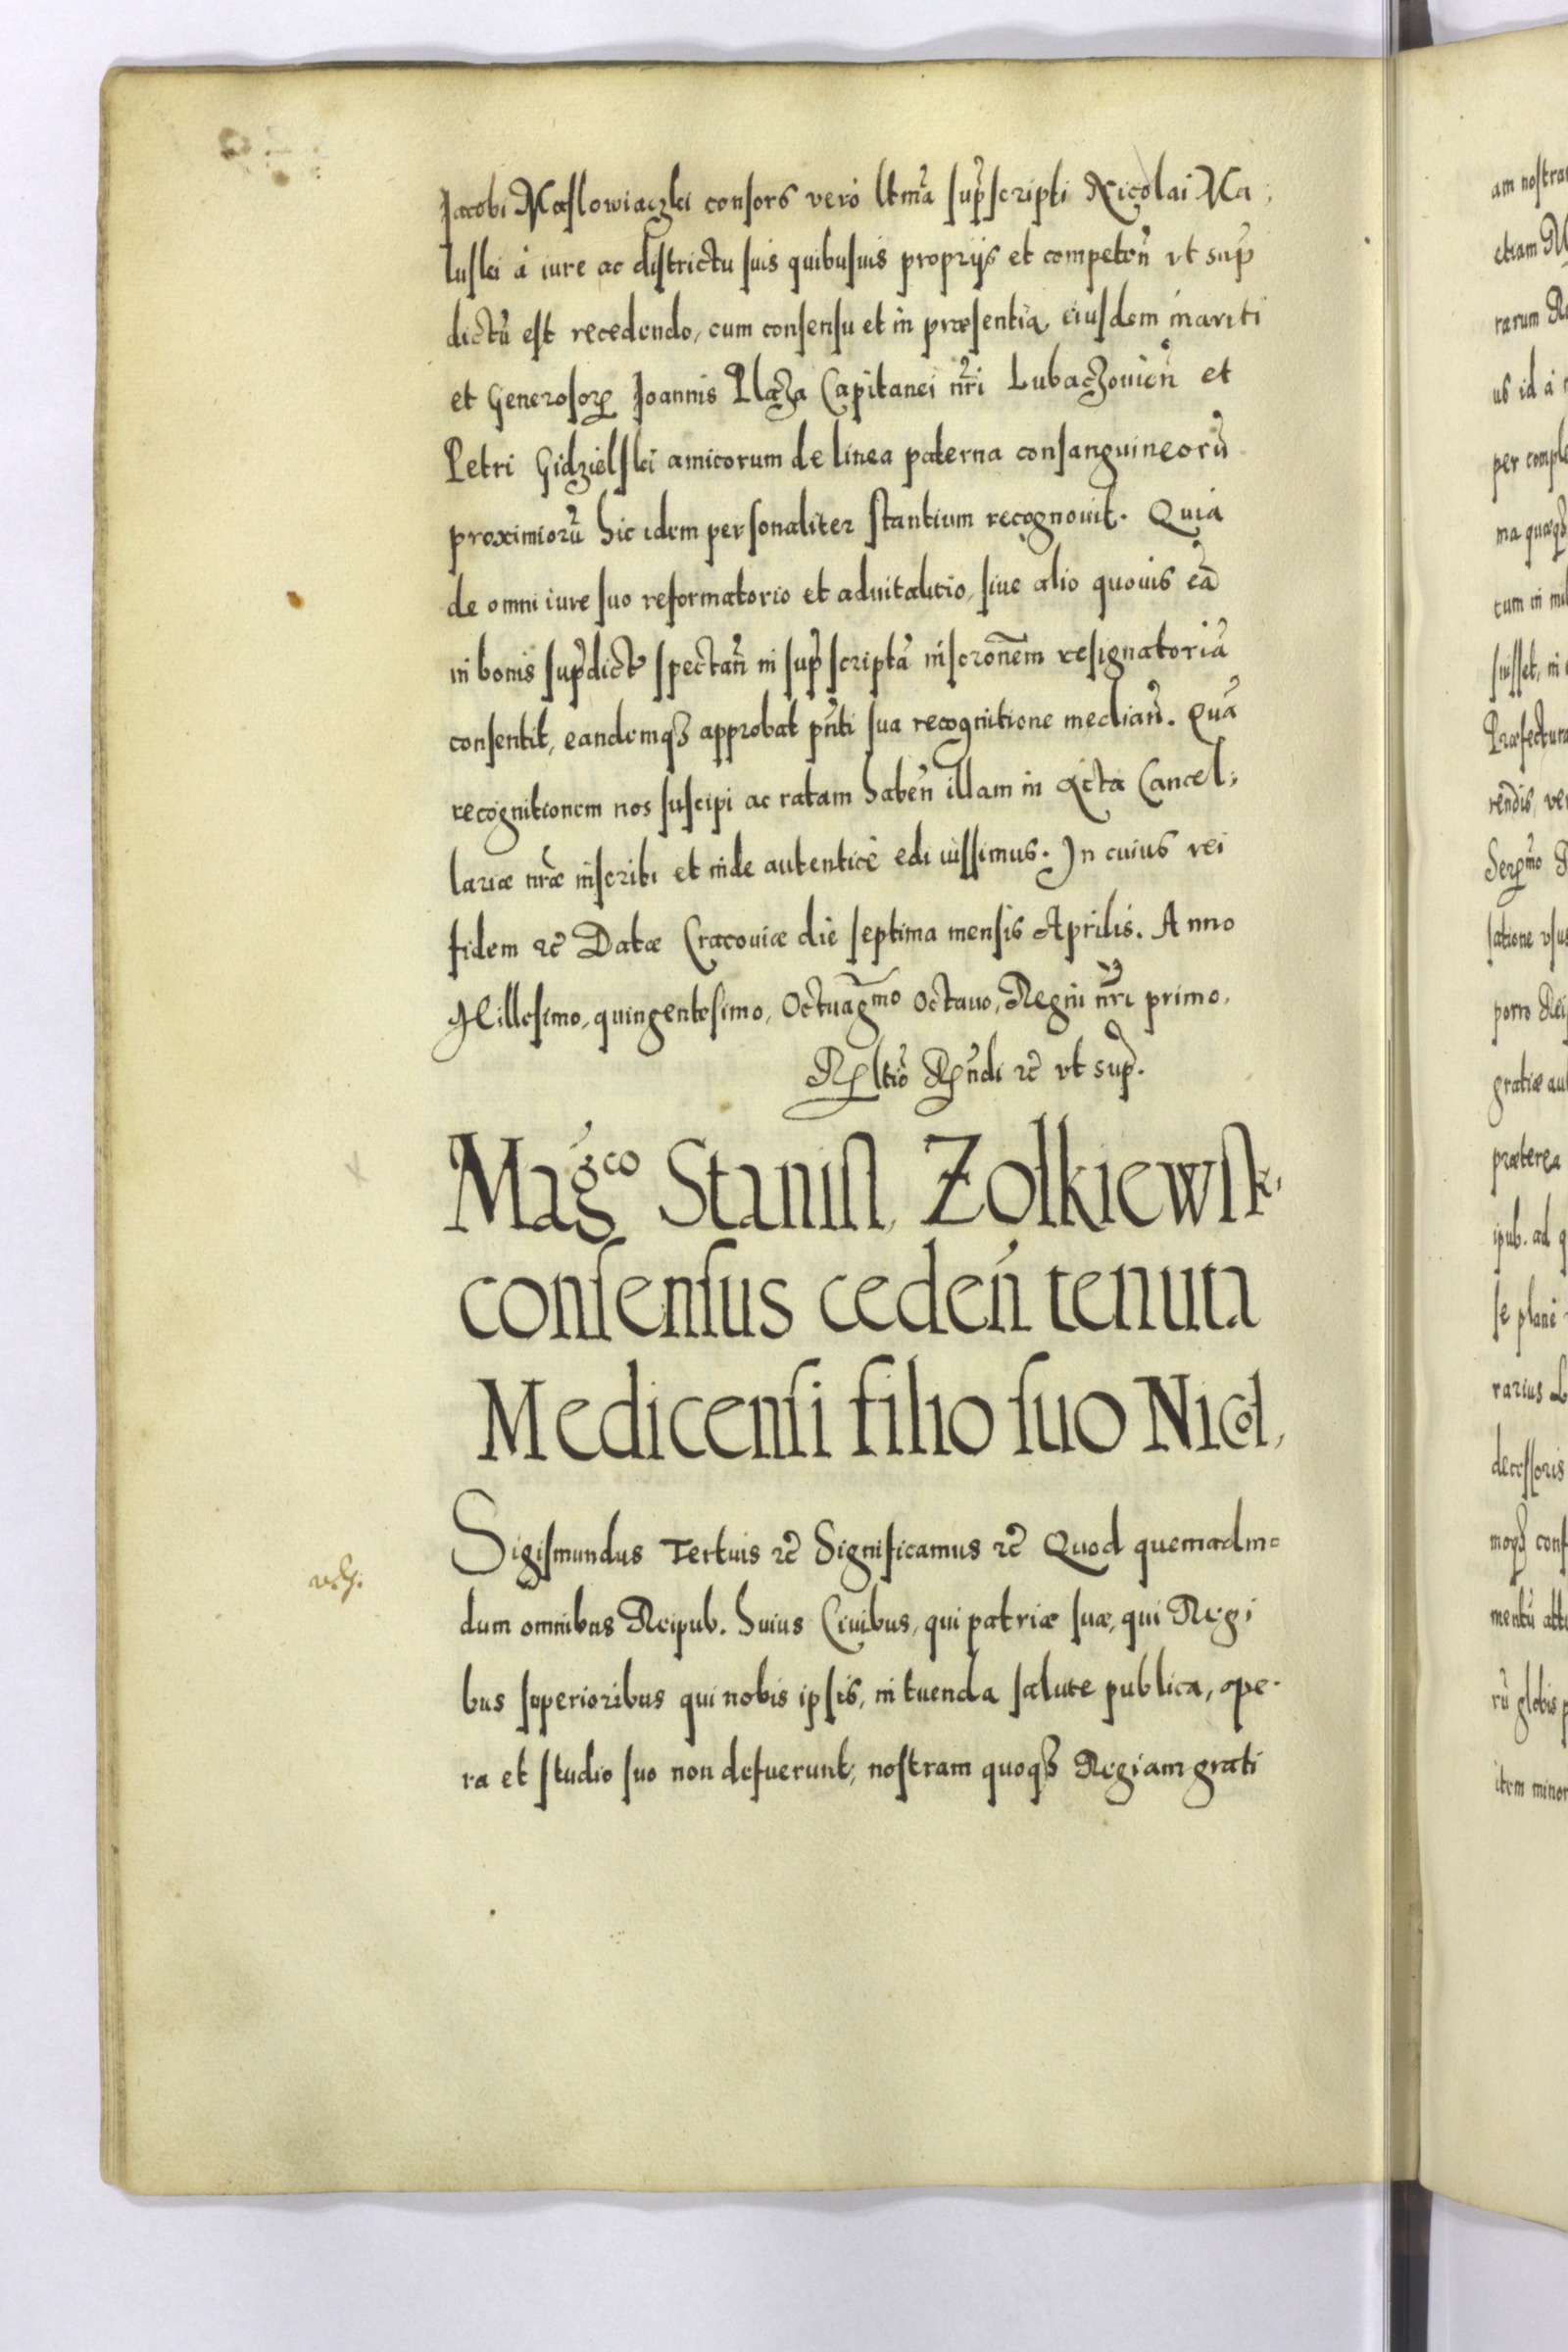 Jacobi Maslowiaczki consors vero ltma supscripti Nicolai Ma;
luski à iure ac districtu suis quibusuis proprijs et competen ut sup
dictū est recedendo, cum consensu et in præsentia eiusdem mariti
et Generosorꝝ Joannis Plaza Capitanei nri Lubaczouien et
Petri Gidzielski amicorum de linea paterna consanguineorū
proximiorū hic idem personaliter stantium recognouit. Quia
de omni iure suo reformatorio et aduitalitio, siue alio quouis eā
in bonis supdict spectan in supscriptā inscronem resignatoriā
consentit, eandemqꝫ approbat pnti sua recognitione median. Quā
recognitionem nos suscipi ac ratam haben illam in Acta Cancel;
lariæ nræ inscribi et inde autenticè edi iussimus. In cuius rei
fidem ꝛc Datæ Cracouiæ die septima mensis Aprilis. Anno
Millesimo, quingentesimo, Octuagmo octauo, Regni nri primo.
Rltio Rndi ꝛc ut sup.
Magco Stanisl, Zolkiewsk,
consensus ceden tenuta
Medicensi filio suo Nicol,
Sigismundus Tertius ꝛc Significamus ꝛc Quod quemadmo=
dum omnibus Reipub. huius Ciuibus, qui patriæ suæ, qui Regi
bus superioribus qui nobis ipsis, in tuenda salute publica, ope-
ra et studio suo non defuerunt, nostram quoqꝫ Regiam grati
am nostra
etiam
rarum
us id à
per comple
ma quæqꝫ
cum in
fuisset, in
Præfectura
rendis, ve
satione usus
porro Rei
gratiæ au
præterea
ipub. ad q
se planè
rarius
decessoris
moqꝫ conf
mentū att
rū globis p
item minor